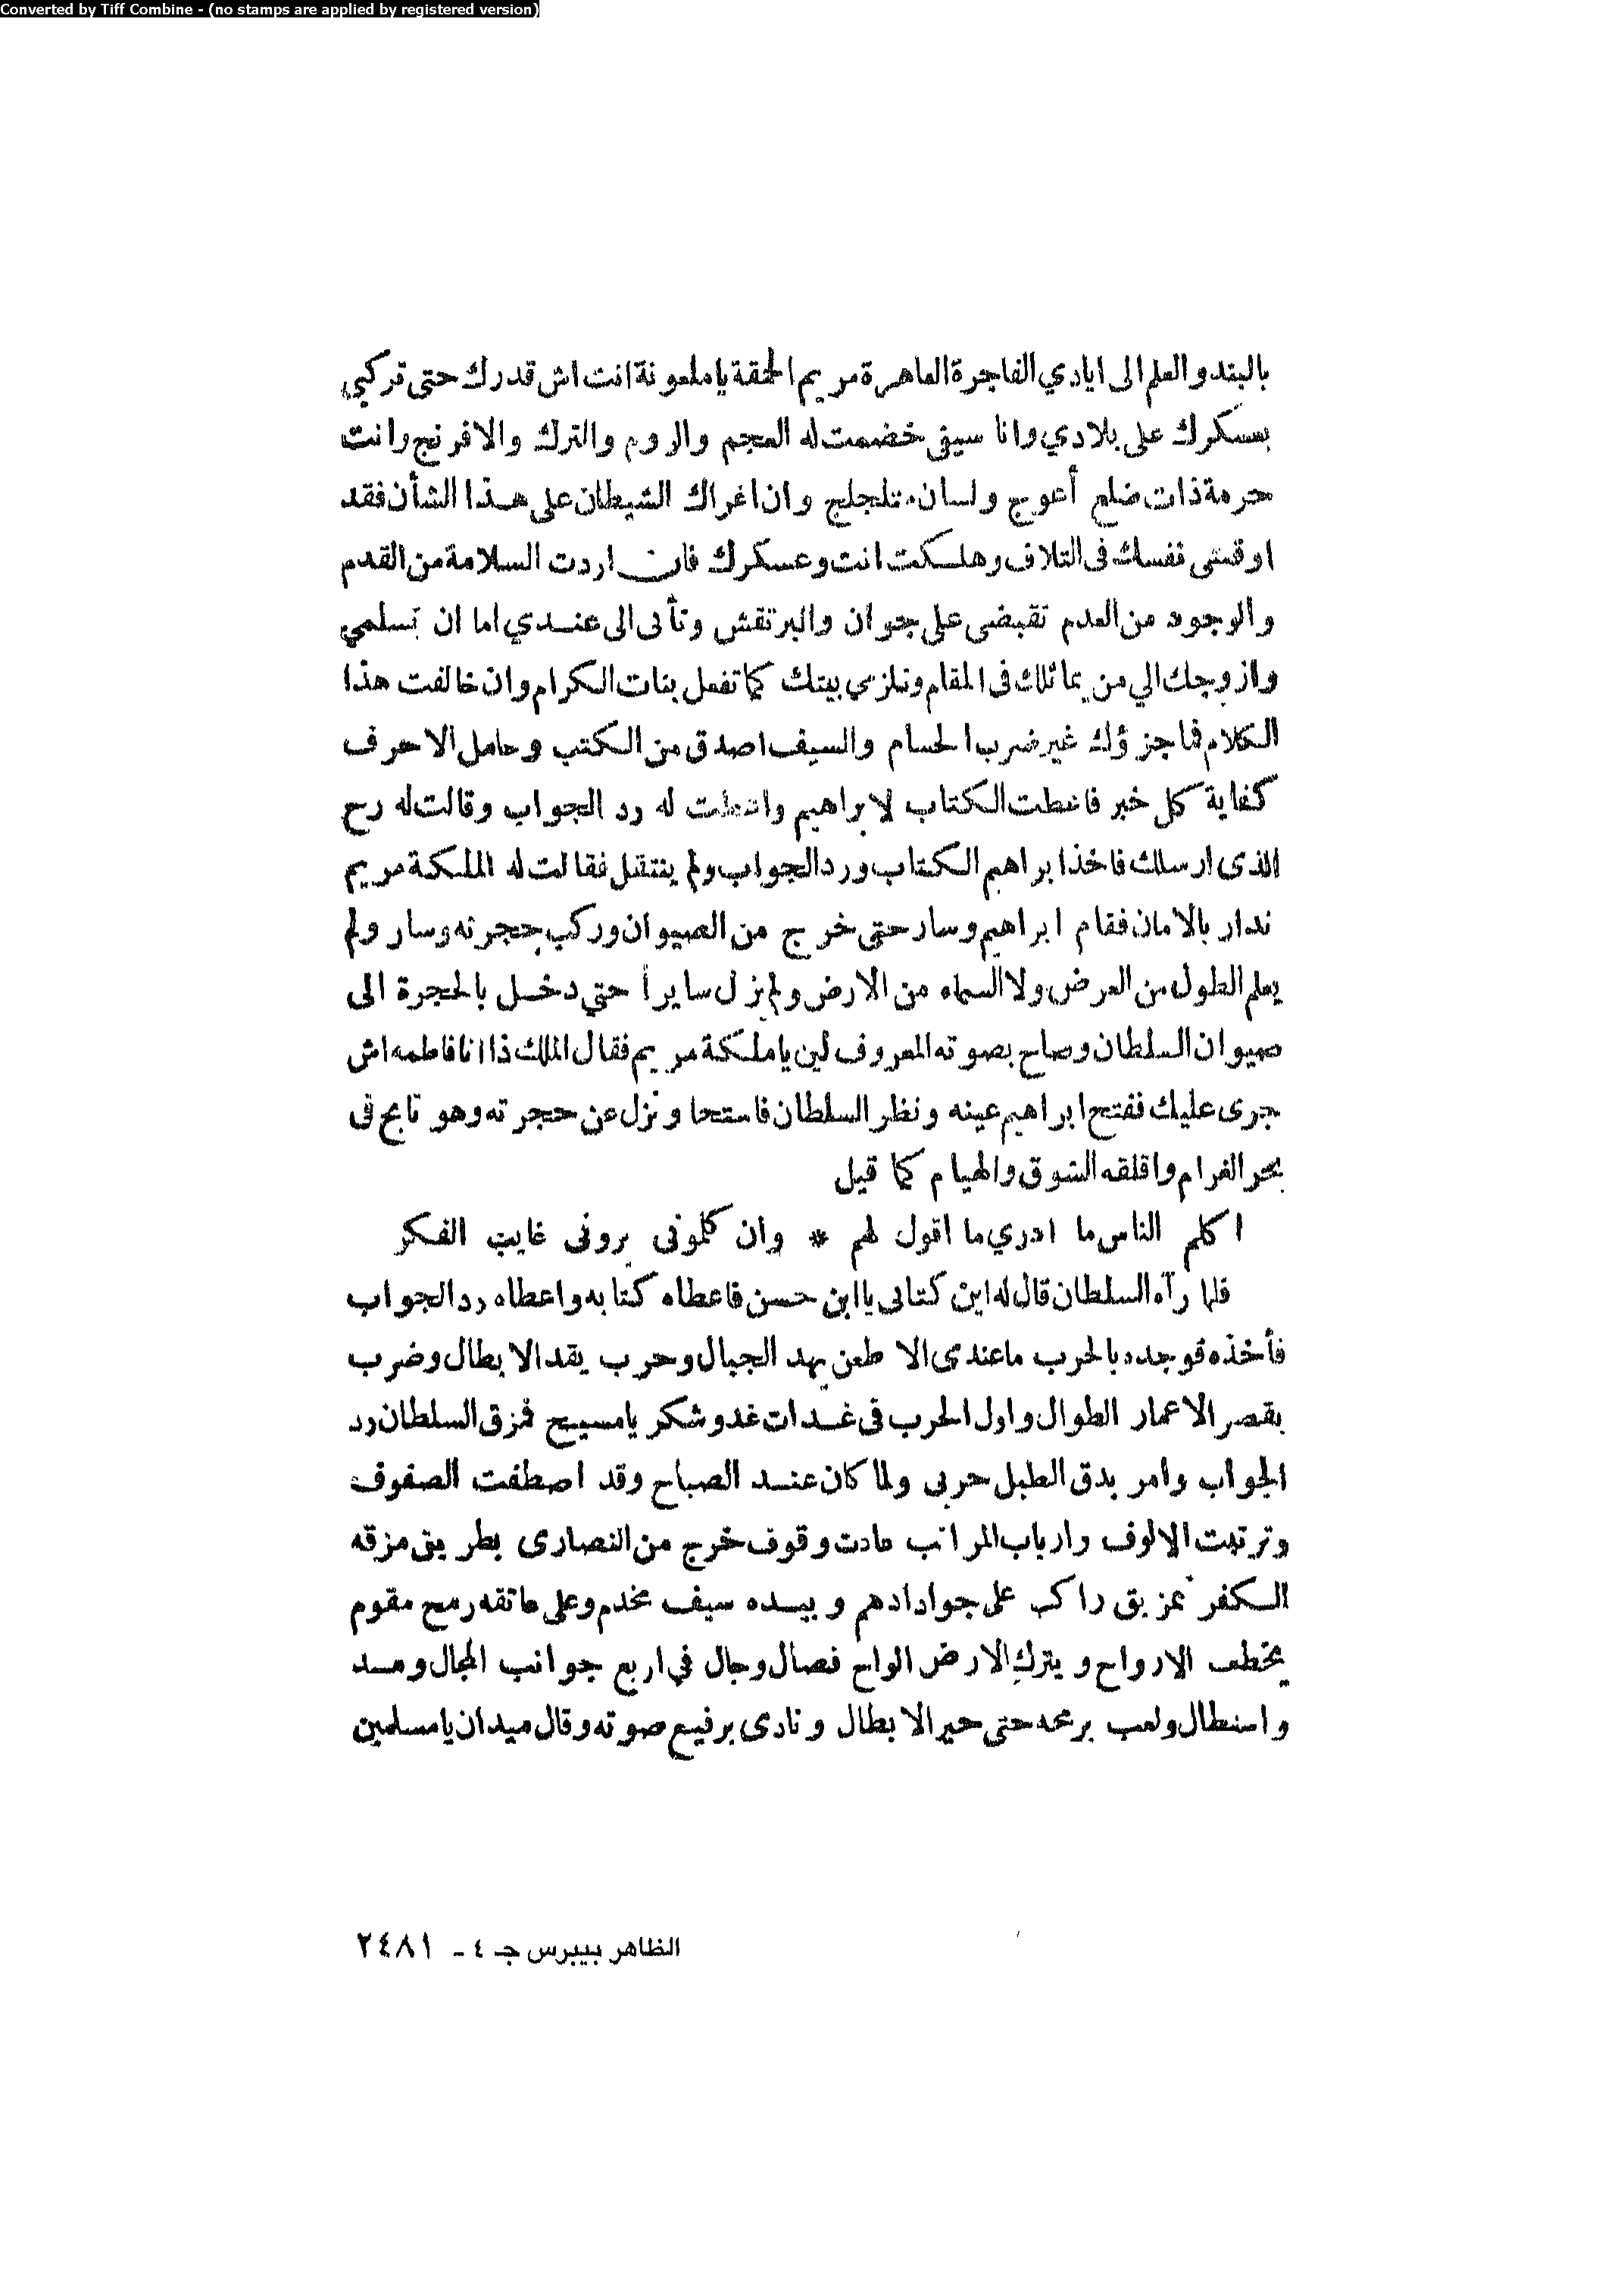 Converted by Tiff Combine - (no stamps are applied by registered version)
بالبند والعلم الى ايادي الفاجرة العاهرة مريم الحقة ياملعونة انت اش قدرك حتى تركبي
بعسكرك على بلادي وانا سيفى خضعت له العجم والروم والترك والافرنج وانت
حرمة ذات ضلع أعوج ولسان متلجلج وان اغراك الشيطان على هذا الشأن فقد
اوقعتى نفسك فى التلاف وهلكت انت وعسكرك فان اردت السلامة من القدم
والوجود من العدم تقبضى على جوان والبرتقش وتأتى الى عندي اما ان تسلمي
وازوجك الي من يماثلك فى المقام وتلزمى بيتك كما تفعل بنات الكرام وان خالفت هذا
الكلام فما جزؤك غير ضرب الحسام والسيف اصدق من الكتب وحامل الاحرف
كفاية كل خبر فاعطت الكتاب لابراهيم واعطت له رد الجواب وقالت له رح
الذى ارسلك فاخذ ابراهيم الكتاب ورد الجواب ولم ينتقل فقالت له الملكة مريم
ندار بالامان فقام ابراهيم وسار حتى خرج من الصيوان وركب حجرته وسار ولم
يعلم الطول من العرض ولا السماء من الارض ولم يزل سايراً حتي دخل بالحجرة الى
صيوان السلطان وصاح بصوته المعروف لين ياملكة مريم فقال الملك ذا انا فاطمه اش
جرى عليك ففتح ابراهيم عينه ونظر السلطان فاستحا ونزل عن حجرته وهو تايح فى
بحر الغرام واقلقه الشوق والهيام كما قيل
اكلم الناس ما ادري ما اقول لهم * وان كلمونى يرونى غايب الفكر
فلما رآه السلطان قال له اين كتابى يا ابن حسن فاعطاه كتابه واعطاه رد الجواب
فأخذه فوجده بالحرب ماعندى الا طعن يهد الجبال وحرب يقد الابطال وضرب
يقصر الاعمار الطوال واول الحرب فى غدات غد وشكر يامسيح فمزق السلطان رد
الجواب وامر بدق الطبل حربى ولما كان عند الصباح وقد اصطفت الصفوف
وترتبت الالوف وارباب المراتب عادت وقوف خرج من النصارى بطريق مزقه
الكفر تمزيق راكب على جواد ادهم وبيده سيف مخدم وعلى عاتقه رمح مقوم
يخطف الارواح ويترك الارض الواح فصال وجال في اربع جوانب المجال ومد
واستطال ولعب برمحه حتى حير الابطال ونادى برفيع صوته وقال ميدان يامسلمين
الظاهر بيبرس جـ ٤ - ٢٤٨١